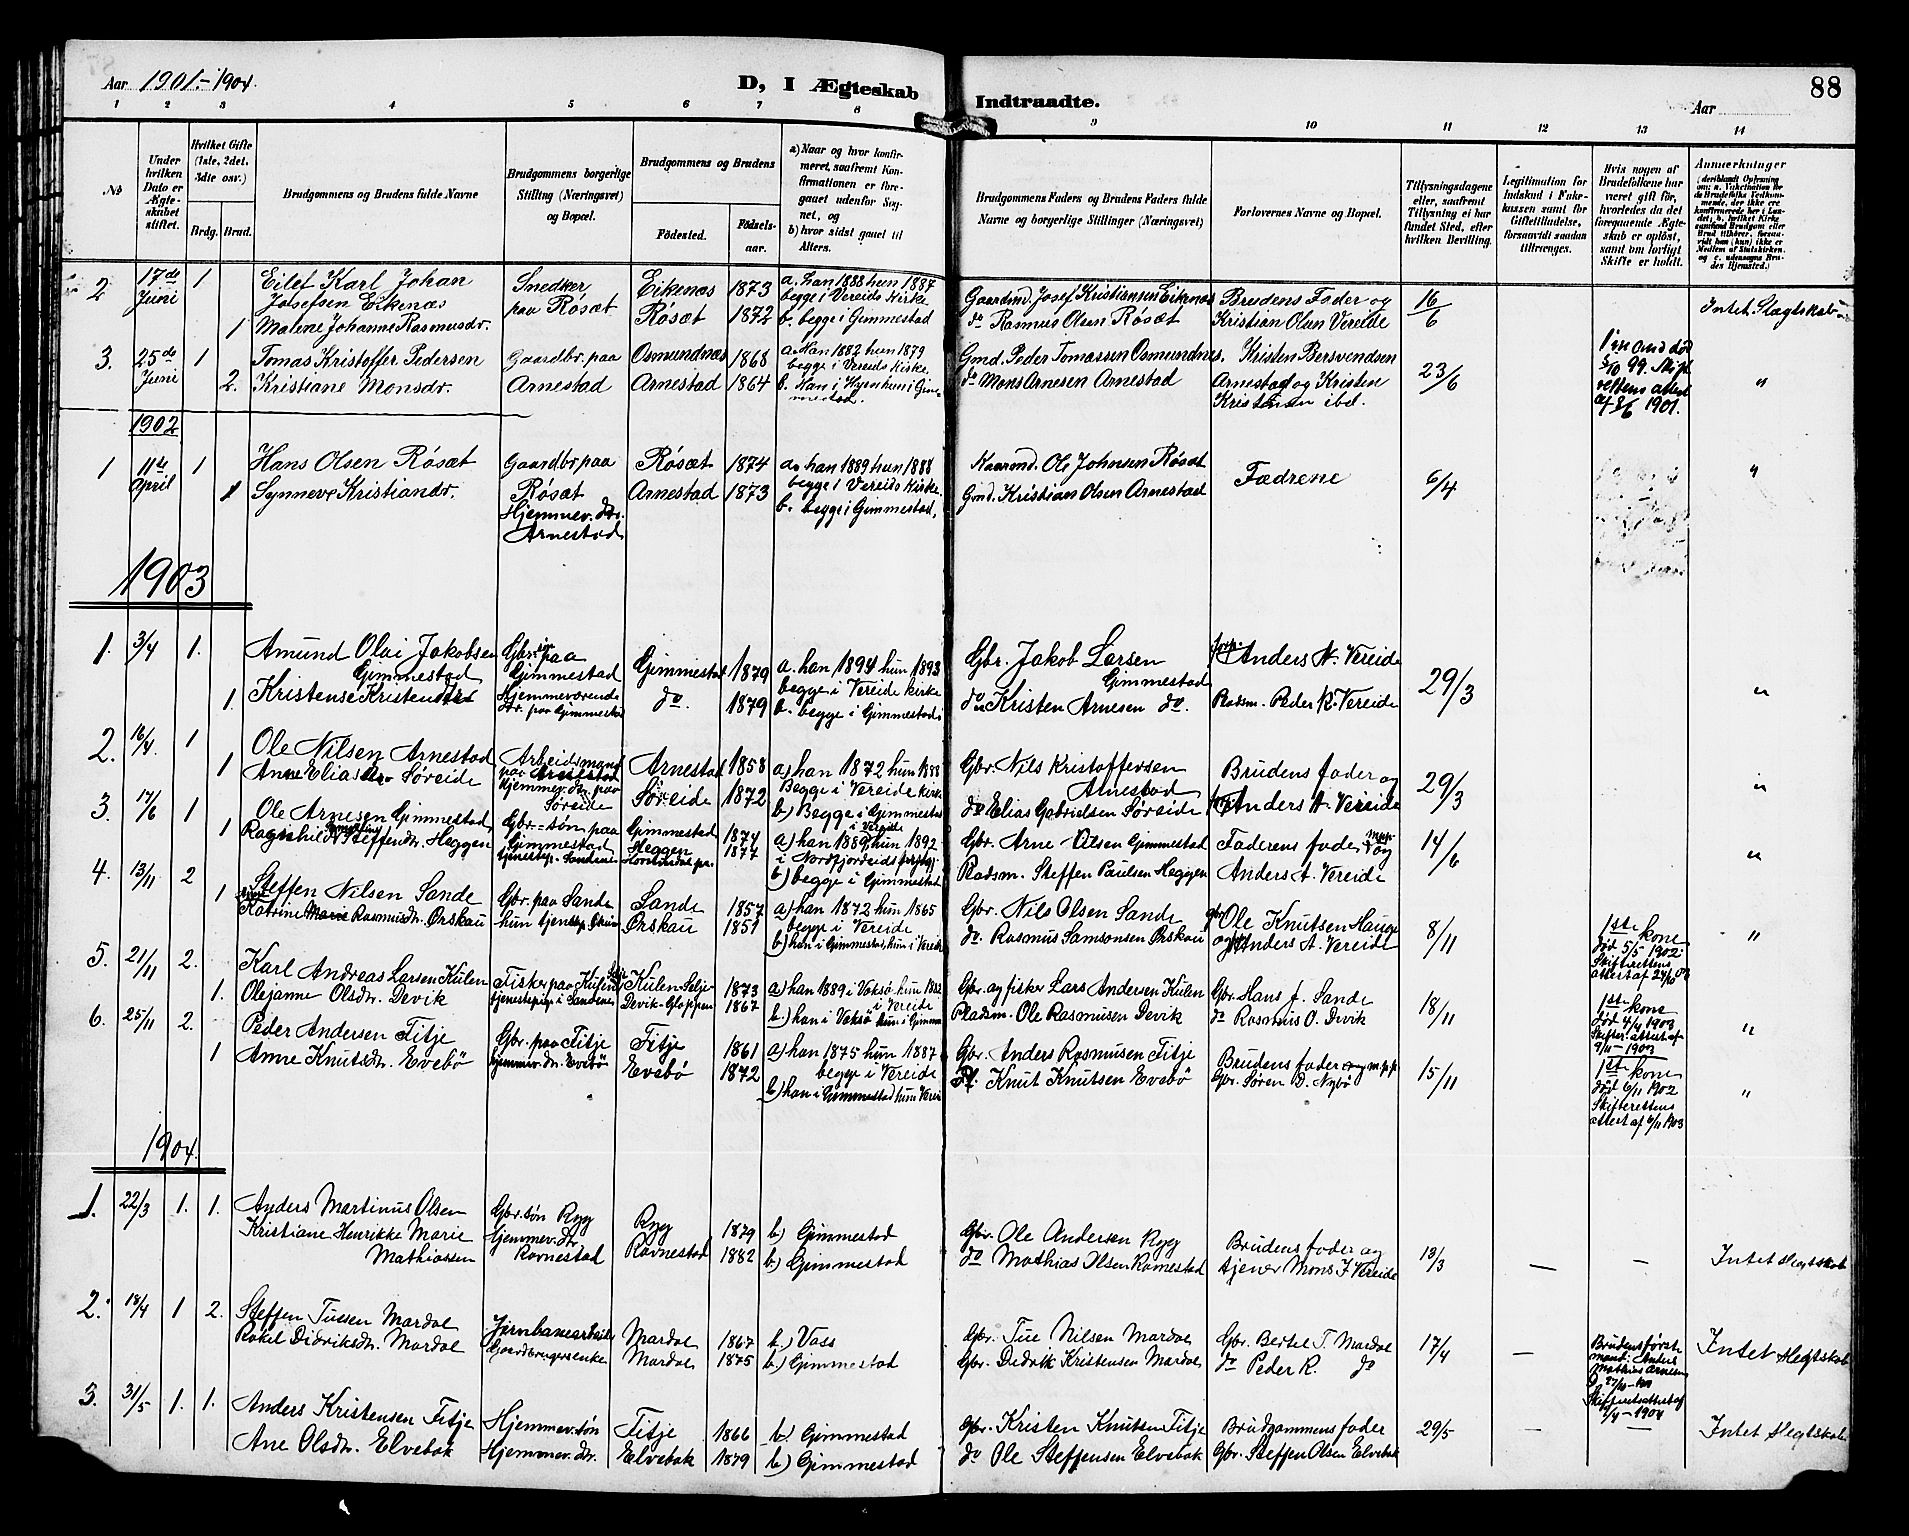 Aar 1901.-1904.
D, I Ægteskab Indtraadte.
Aar
88
1 2 3 4 5 6 7 8 9 10 11 12 13 14
No
Under hvilken Dato er Ægteskabet stiftet.
Hvilket Gifte (1ste, 2det, 3die osv.)
Brdg. Brud.
Brudgommens og Brudens fulde Navne
Brudgommens borgerlige Stilling (Næringsvei) og Bopæl.
Brudgommens og Brudens
Fødested.
Fødselsaar.
a) Naar og hvor konfirmeret, saafremt Konfirmationen er foregaaet udenfor Sognet, og
b) hvor sidst gaaet til Alters.
Brudgommens Faders og Brudens Faders fulde Navne og borgerlige Stillinger (Næringsvei)
Forlovernes Navne og Bopæl.
Tillysningsdagene eller, saafremt Tillysning ei har fundet Sted, efter hvilken Bevilling.
Legitimation for Indskud i Enkekassen samt for Giftetilladelse, forsaavidt saadan tiltrænges.
Hvis nogen af Brudefolkene har været gift før, hvorledes da det foregaaende Ægteskab er opløst, samt om lovligt Skifte er holdt.
Anmærkninger
2 17de Juni 1 Eilef Karl Johan Josefsen Eikenæs Snedker paa Rósæt Eikenæs 1873 a. han 1888 hun 1887 begge i Vereids Kirke Gaardmd. Josef Kristiansen Eikenæs Brudens Fader og 16/6 Intet Slægtskab
1 Malene Johanne Rasmusdr. Rósæt 1872 b. begge i Gimmestad do Rasmus Olsen Rósæt Kristian Olsen Vereide
3. 25de Juni 1 Tomas Kristoffer Pedersen Gaardbr. paa Osmundnæs 1868 a. Han 1882 hun 1879 begge i Vereids Kirke. Gmd. Peder Tomassen Osmundnes. Kristen Bersvendsen 23/6
2. Kristiane Monsdr. Arnestad Arnestad 1864 do Mons Arnesen Arnestad Arnestad og Kristen Kristiansen ibd. af 8/6 1901. "
1902
1 11te April 1 Hans Olsen Rósæt Gaardbr paa Rósæt Rósæt 1874 a. han 1889 hun 1888 begge i Vereids Kirke. Ole Johnsen Rósæt Fædrene 6/4 "
1 Synneve Kristiandr. Hjemmev. dtr. Arnestad Arnestad 1873 b. begge i Gimmestad. Gmd. Kristian Olsen Arnestad
1903
1. 3/4 1. Amund Olai Jakobsen Gimmestad paa Gimmestad Gimmestad 1879 a. han 1894 hun 1893 begge i Vereide kirke Gbr. Jakob Larsen Gimmestad Anders A. Vereide 29/3 "
1. Kristense Kristensdtr Hjemmeværende dtr. paa Gimmestad do. 1879 b. begge i Gimmestad. do Kristen Arnesen do. Pladsm. Peder R. Vereide
2. 16/4. 1 Ole Nilsen Arnestad Arbeidsmand paa Arnestad Arnestad 1858 a) han 1872 hun 1888 Begge i Vereide kirke Gbr. Nils Kristoffersen Arnestad Brudens fader og 29/3 "
1 Anne Eliasdtr Søreide Hjemmev. dtr. paa Søreide Søreide 1872 b) Begge i Gimmestad do Elias Gabrielsen Søreide Anders A. Vereide
3. 17/6 1 Ole Arnesen Gimmestad Gbr-søn paa Gimmestad Gimmestad 1874 a) han 1889, hun 1892 i Nordfjordeid Gbr. Arne Olsen Gimmestad Faderens fader og 14/6 "
1 Ragnhild Steffensdr. Heggen Heggen 1877 b) begge i Gimmestad Pladsm. Steffen Paulsen Heggen Anders A. Vereide
4. 13/11 2 Steffen Nilsen Sande Gbr. paa Sande Sande 1857 a) han 1872 hun 1865 begge i Vereide Gbr. Nils Olsen Sande Ole Knutsen Hauge 8/11 1ste kone død 5/5 1902. Skifterettens attest af "
1 Katrine Marie Rasmusdtr. Ørskau hun Ørskau 1851 b) han i Gimmestad, hun i Vereide do. Rasmus Samsonsen Ørskau og Anders A. Vereide
5. 21/11 2. Karl Andreas Larsen Kulen Fisker paa Kulen Kulen Selje 1873 a) han 1889 i Vaksø hun 1882 i Vereide Gbr. og fisker Lars Andersen Kulen Gbr. Hans J. Sande 18/11 1ste kone død 4/4 1903 Skifter. attest af 9/11-1903 "
1. Olejanne Olsdr. Devik Devik-Gloppen 1867 b) han i Vaksø hun i Gimme Pladsm. Ole Rasmusen Devik do Rasmus O. Devik
6. 25/11 2. Peder Andersen Fitje Gbr. paa Fitje Fitje 1861 a) han 1875 hun 1887 begge i Vereide Gbr. Anders Rasmusen Fitje Brudens fader 15/11 1ste kone død 6/11 1902 Skifterettens attest af 6/11 1903 "
1 Anne Knutsdtr. Evebø hjemmev. dtr. Evebø Evebø 1872 b) han i Gimmestad hun Verei Knut Knutsen Evebø Gbr. Søren D. Nybø
1904.
1. 22/3 1. 1. Anders Martinus Olsen Gbr. søn Ryg Ryg 1879 b) Gimmestad Gbr. Ole Andersen Ryg Brudens fader og 13/3 — — Intet Slegtskab
Kristiane Henrikke Marie Mathiassen Hjemmev. dtr. Ravnestad Ravnestad 1882 b.) Gimmestad do Mathias Olsen Ravnestad tjener Mons J. Vereide
2. 18/4 1 2. Steffen Tuesen Mardal Jernbanearbeider Mardal 1867 b.) Vass Gbr. Tue Nilsen Mardal Gbr. Bertel T. Mardal 17/4 — Brudens første mand: Anders Mathias Arnesen Skifterets attest af 9/4-1904 Intet Slegtskab
Rakel Didriksdr. Mardal Gaardbrugerenke Mardal 1875 b.) Gimmestad Gbr. Didrik Kristensen Mardal do Peder R. do
3. 31/5 1. 1. Anders Kristensen Fitje Hjemmev. søn Fitje 1866 b) Gimmestad Gbr. Kristen Knutsen Fitje Brudgommens fader 29/5 — — Intet Slegtskab
Ane Olsdtr. Elvebak Hjemmev. dtr. Elvebak 1879 b) Gimmestad do Ole Steffensen Elvebak Gbr. Steffen Olsen Elvebak